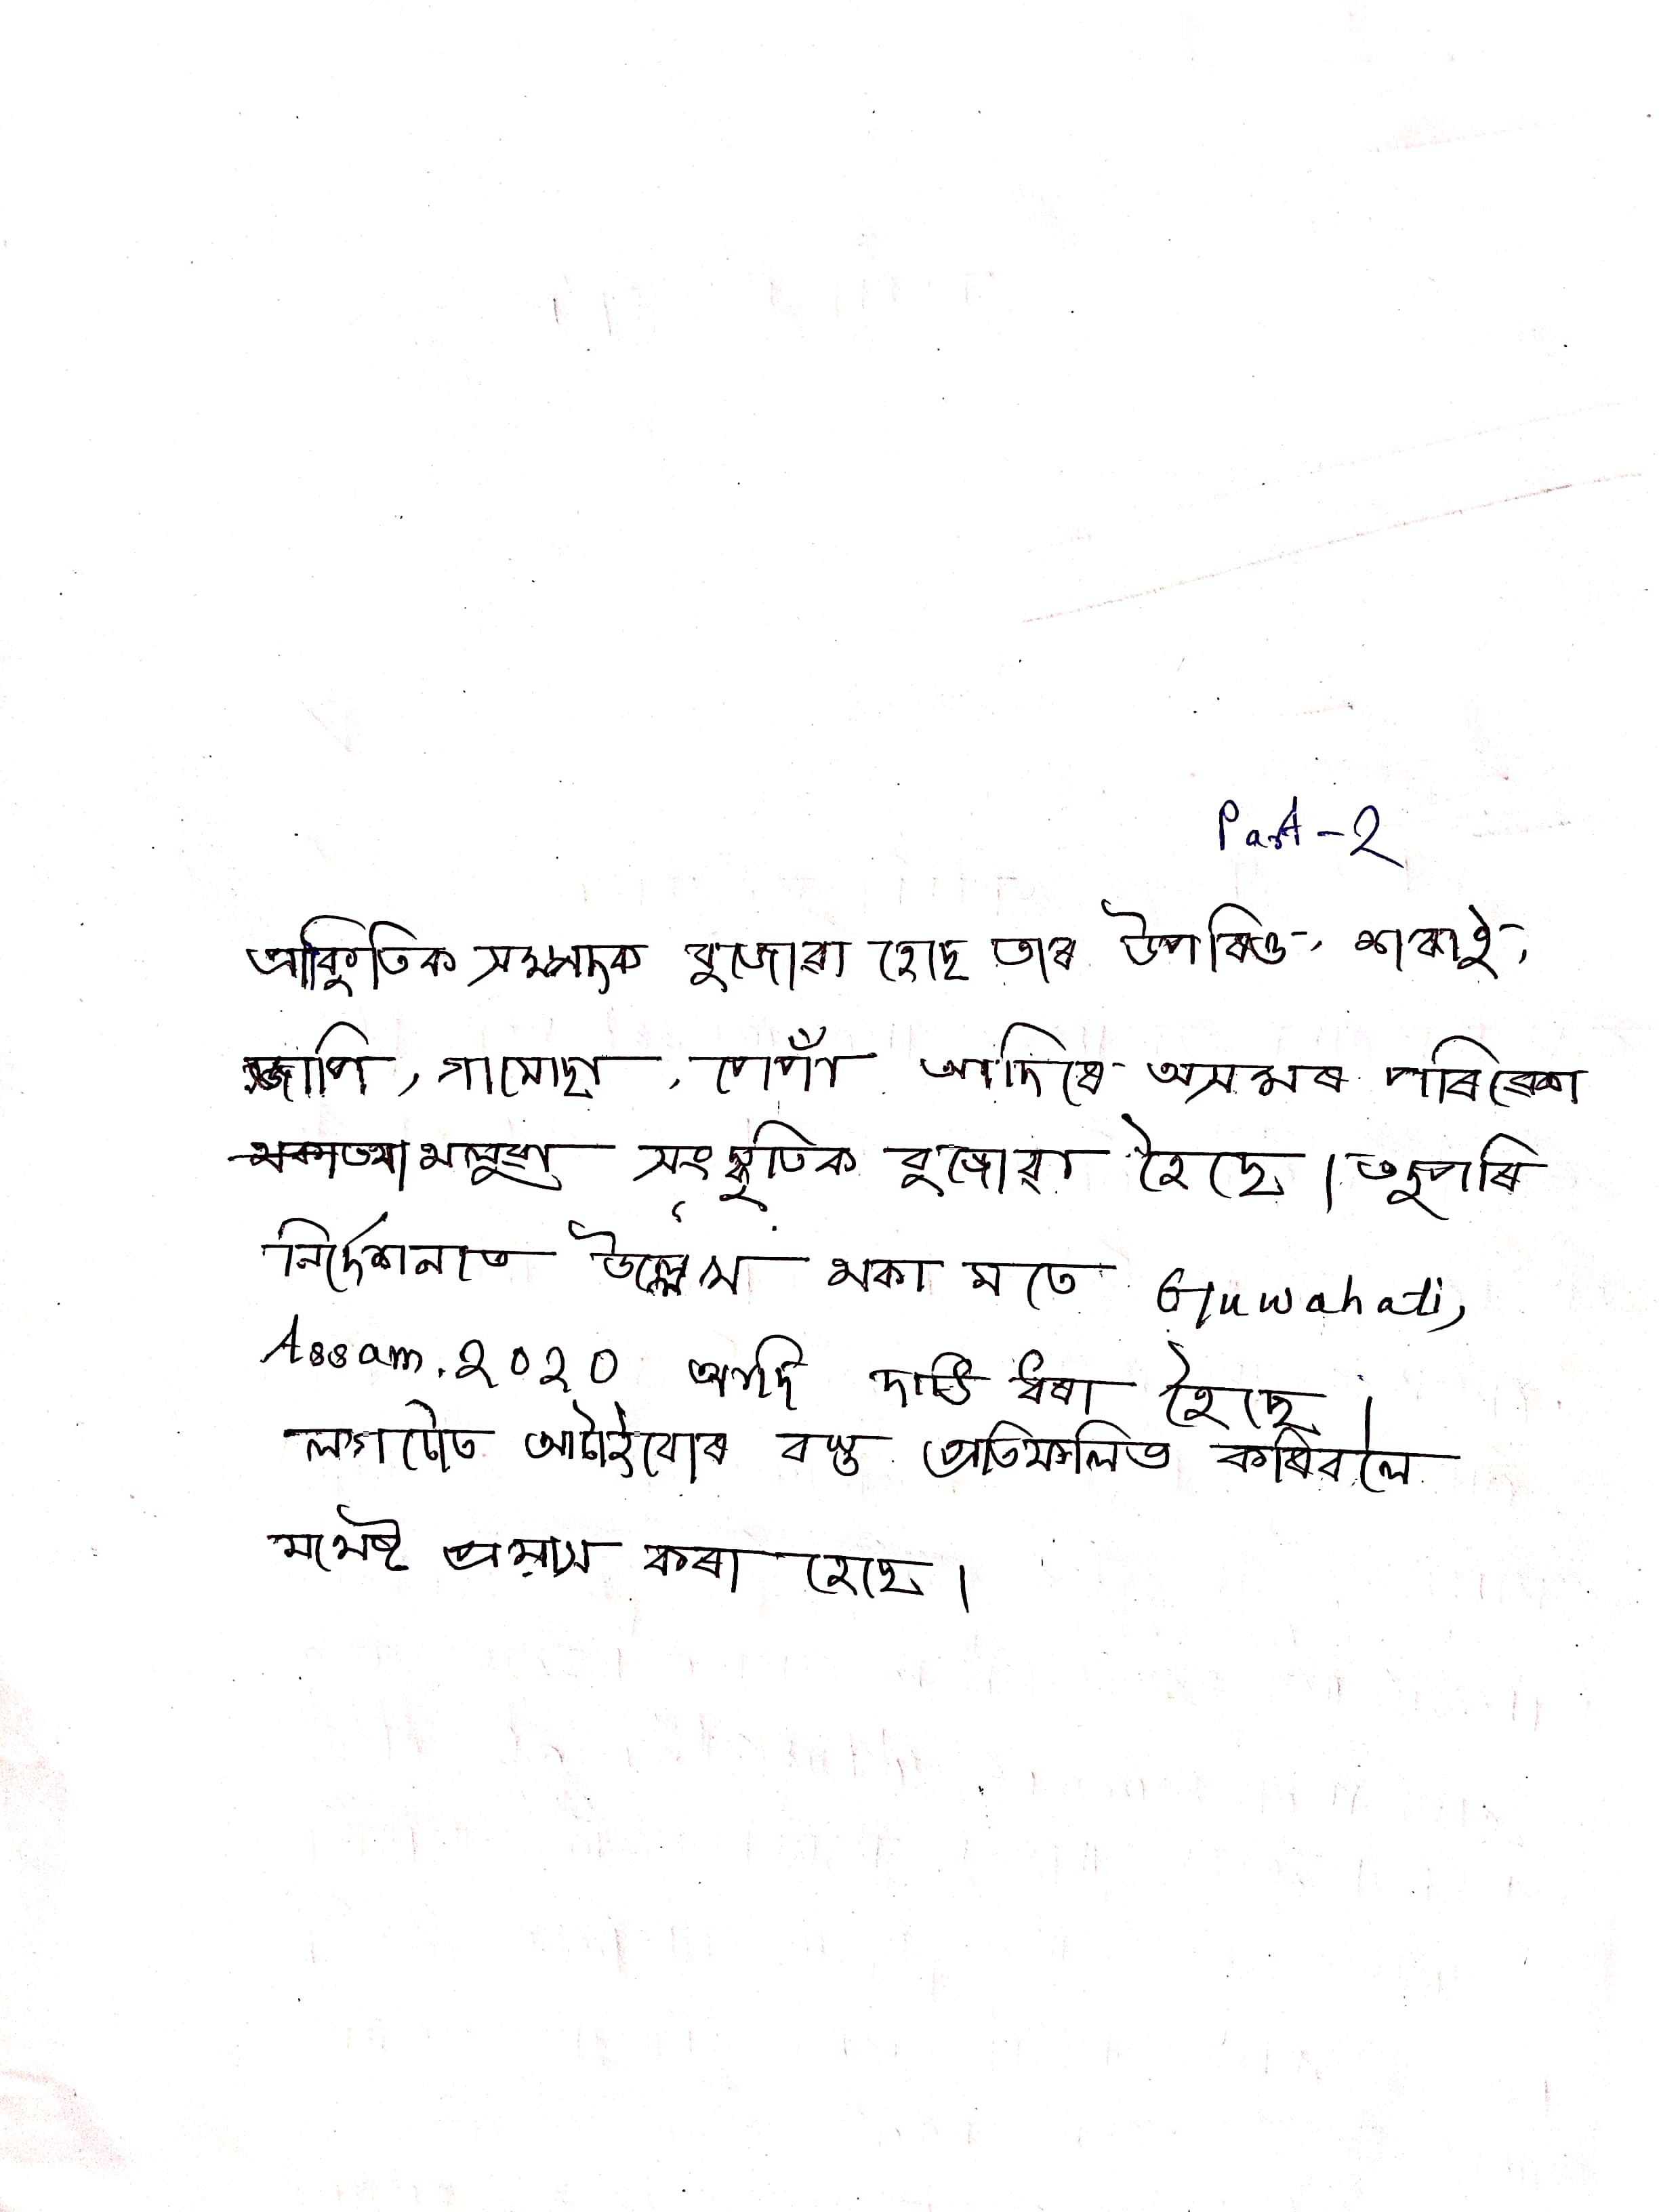 Part-2
প্ৰাকৃতিক সম্পদক বুজোৱা হৈছে তাৰ উপৰিও, শৰাই,
জাপি, গামোছা, পেপাঁ আদিয়ে অসমৰ পৰিবেশ
সংস্কৃতিক বুজোৱা হৈছে। তদুপৰি
নিৰ্দেশনাত উল্লেখ থকা মতে Guwahati,
Assam. 2020 আদি দাঙি ধৰা হৈছে।
লগতে আটাইবোৰ বস্তু প্ৰতিফলিত কৰিবলৈ
যথেষ্ট প্ৰয়াস কৰা হৈছে।